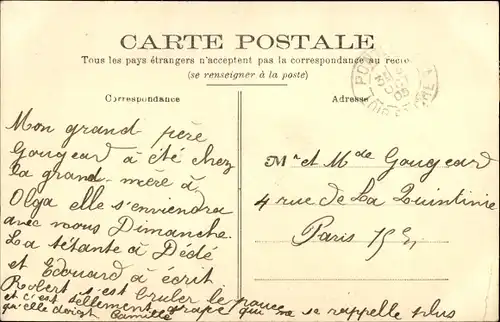 CARTE POSTALE
Tous les pays étrangers n'acceptent pas la correspondance au recto
(se renseigner à la poste)
Correspondance
Adresse
Mon grand père
Gougeard à été chez
la grand-mère à
Olga elle s'enviendra
avec nous Dimanche.
La tétante à Dédé
et Edouard à écrit
Robert s'est bruler le pouce
et c'est tellement grave qui ne se rappelle plus
qu'elle doigt. Camille
Mr et Mde Gougeard
4 rue de La Quintinie
Paris 15e